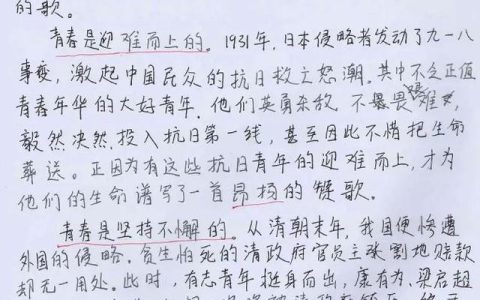 的歌。
青春是迎难而上的。1931年,日本侵略者发动了九一八
事变,激起中国民众的抗日救亡怒潮。其中不乏正值
青春年华的大好青年。他们英勇杀敌,不畏艰难,
毅然决然,投入抗日第一线,甚至因此不惜把生命
葬送。正因为有这些抗日青年的迎难而上,才为
他们的生命谱写了一首昂扬的赞歌。
青春是坚持不懈的。从清朝末年,我国便惨遭
外国的侵略。贪生怕死的清政府官员主张割地赔款
却无一用处。此时,有志青年挺身而出,康有为、梁启超